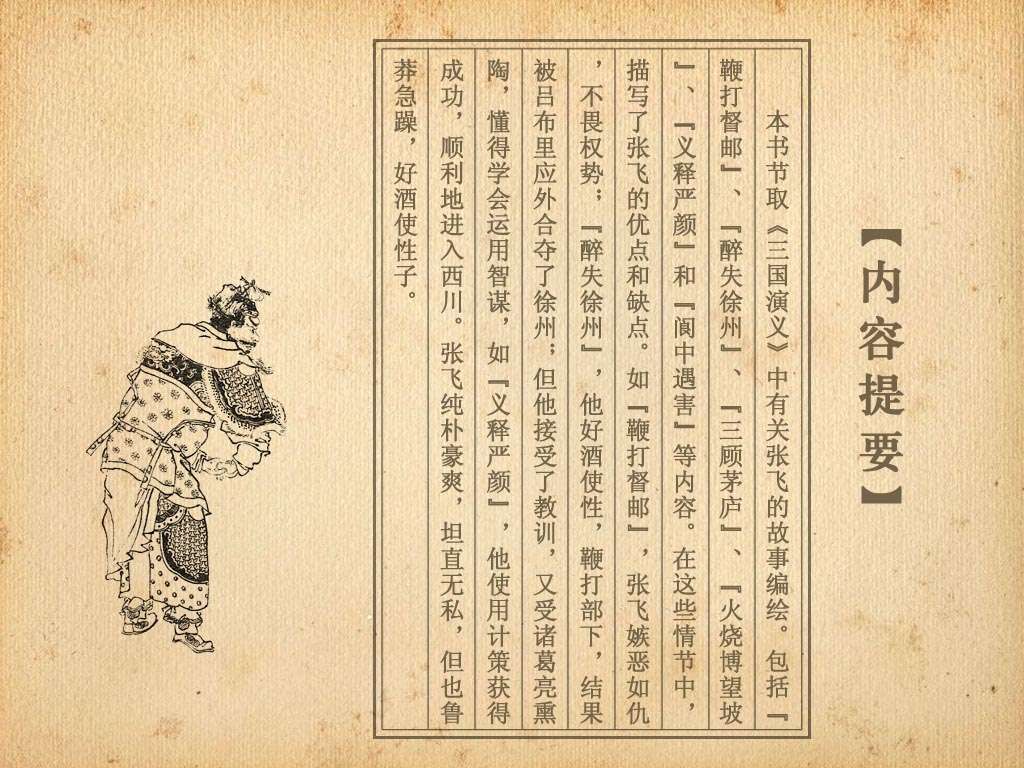 【内容提要】
本书节取《三国演义》中有关张飞的故事编绘。包括『
鞭打督邮』、『醉失徐州』、『三顾茅庐』、『火烧博望坡
』、『义释严颜』和『阆中遇害』等内容。在这些情节中，
描写了张飞的优点和缺点。如『鞭打督邮』，张飞嫉恶如仇
，不畏权势；『醉失徐州』，他好酒使性，鞭打部下，结果
被吕布里应外合夺了徐州；但他接受了教训，又受诸葛亮熏
陶，懂得学会运用智谋，如『义释严颜』，他使用计策获得
成功，顺利地进入西川。张飞纯朴豪爽，坦直无私，但也鲁
莽急躁，好酒使性子。